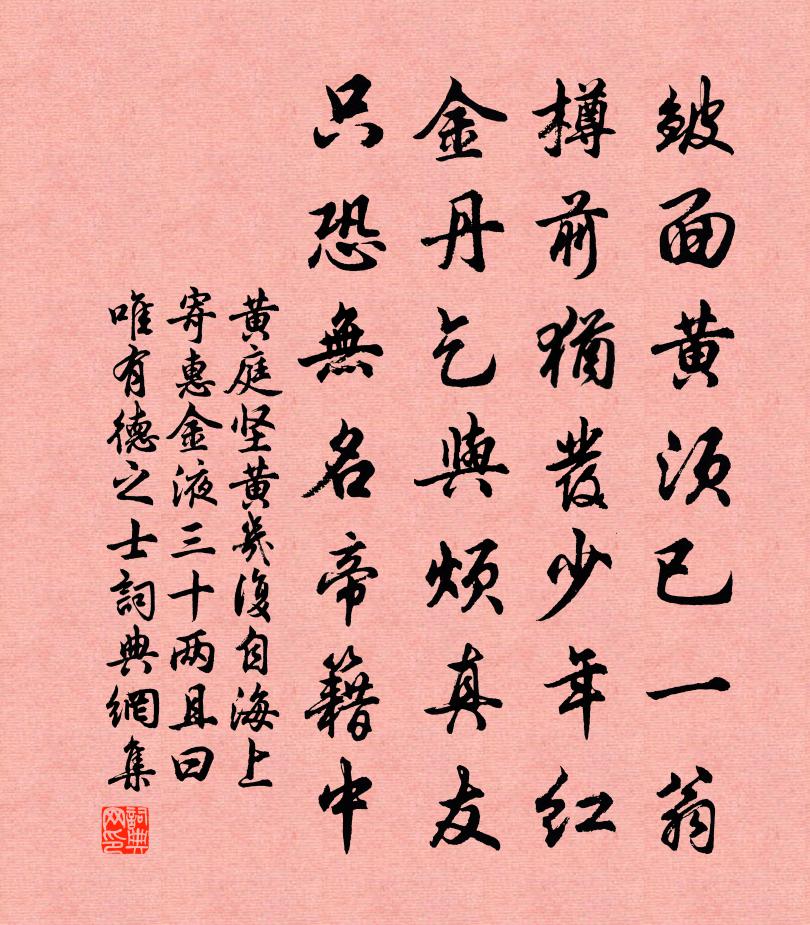 皺面黄須已一翁
樽前猶發少年红
金丹乞與煩真友
只恐無名帝籍中
黄庭坚黄幾復自海上
寄惠金液三十两且曰
唯有德之士詞典網集
詞典网印